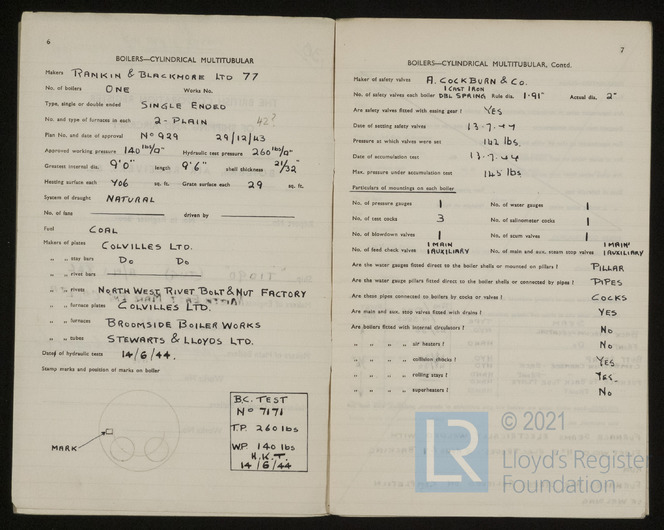 6
BOILERS—CYLINDRICAL MULTITUBULAR
Makers RANKIN & BLACKMORE LTD 77
No. of boilers ONE Works No.
Type, single or double ended SINGLE ENDED
No. and type of furnaces in each 2-PLAIN 42?
Plan No. and date of approval No 929 29/12/43
Approved working pressure 140 lbs/□" Hydraulic test pressure 260 lbs/□"
Greatest internal dia. 9'0" length 9'6" shell thickness 21/32"
Heating surface each 406 sq. ft. Grate surface each 29 sq. ft.
System of draught NATURAL
No. of fans driven by
Fuel COAL
Makers of plates COLVILLES LTD.
„ „ stay bars Do Do
„ „ rivet bars
„ „ rivets NORTH WEST RIVET BOLT & NUT FACTORY
„ „ furnace plates COLVILLES LTD.
„ „ furnaces BROOMSIDE BOILER WORKS
„ „ tubes STEWARTS & LLOYDS LTD.
Dates of hydraulic tests 14/6/44.
Stamp marks and position of marks on boiler
MARK
B.C. TEST
No 7171
T.P. 260 lbs
W.P. 140 lbs
H.K.T.
14/6/44
7
BOILERS—CYLINDRICAL MULTITUBULAR, Contd.
Maker of safety valves A. COCKBURN & CO.
1 CAST IRON
No. of safety valves each boiler DBL SPRING Rule dia. 1.91" Actual dia. 2"
Are safety valves fitted with easing gear? YES
Date of setting safety valves 13-7-44
Pressure at which valves were set 142 lbs.
Date of accumulation test 13-7-44
Max. pressure under accumulation test 145 lbs
Particulars of mountings on each boiler
No. of pressure gauges 1 No. of water gauges 1
No. of test cocks 3 No. of salinometer cocks 1
No. of blowdown valves 1 No. of scum valves 1
No. of feed check valves 1 MAIN 1 AUXILIARY No. of main and aux. steam stop valves 1 MAIN 1 AUXILIARY
Are the water gauges fitted direct to the boiler shells or mounted on pillars? PILLAR
Are the water gauge pillars fitted direct to the boiler shells or connected by pipes? PIPES
Are these pipes connected to boilers by cocks or valves? COCKS
Are main and aux. stop valves fitted with drains? YES
Are boilers fitted with internal circulators? NO
„ „ „ „ air heaters? NO
„ „ „ „ collision chocks? YES
„ „ „ „ rolling stays? YES
„ „ „ „ superheaters? NO
LR
© 2021
Lloyd's Register
Foundation